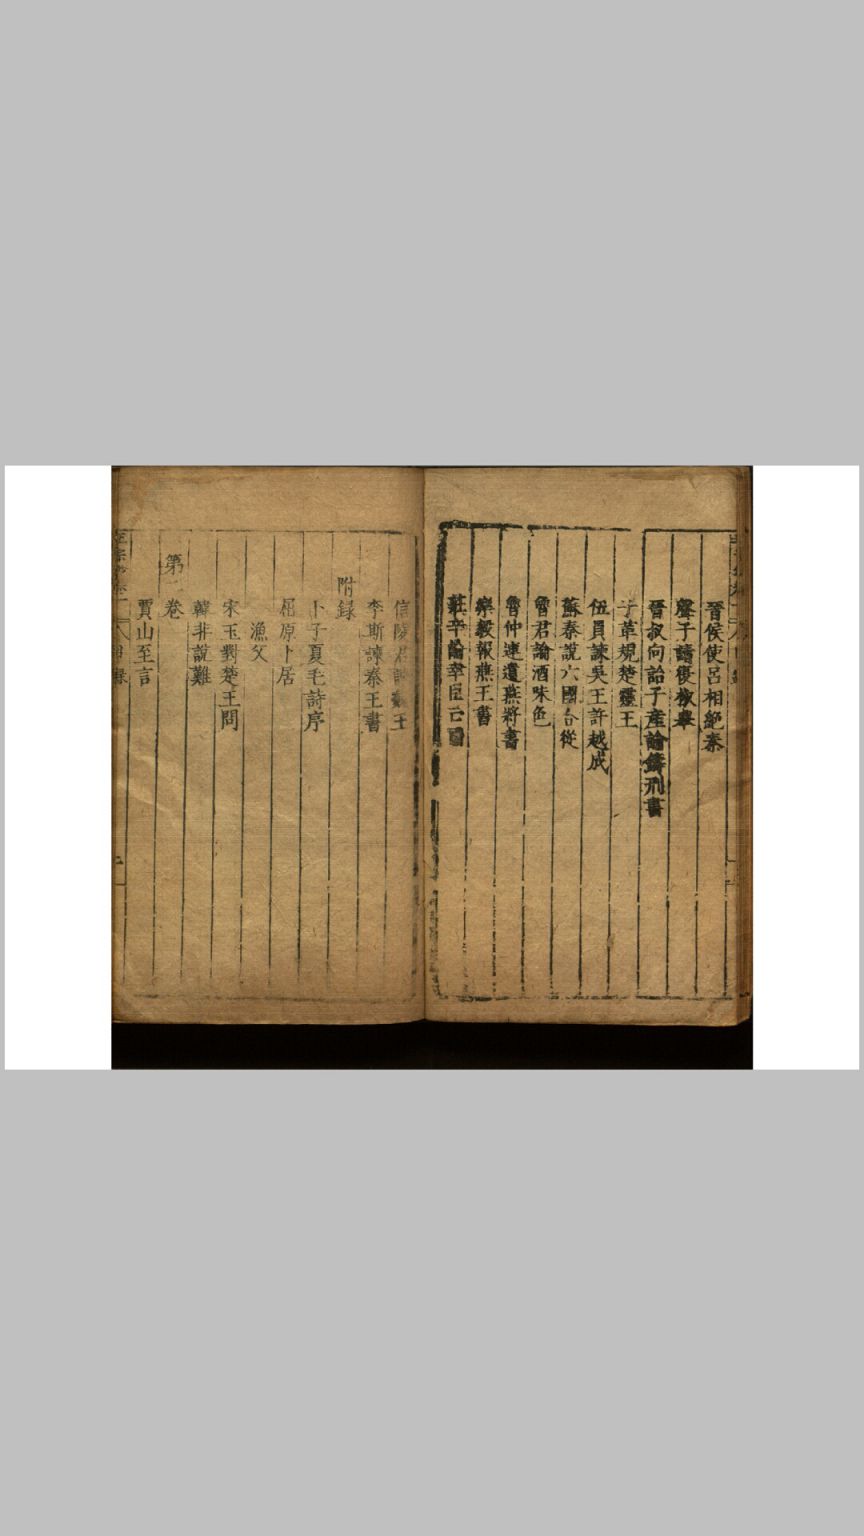 晉侯使呂相絕秦
聲子請復椒舉
晉叔向詒子產論鑄刑書
子革規楚靈王
伍員諫吳王許越成
蘇秦說六國合從
魯君論酒味色
魯仲連遺燕將書
樂毅報燕王書
莊辛論幸臣亡國
信陵君諫魏王
李斯諫秦王書
附錄
卜子夏毛詩序
屈原卜居
漁父
宋玉對楚王問
韓非說難
第二卷
賈山至言